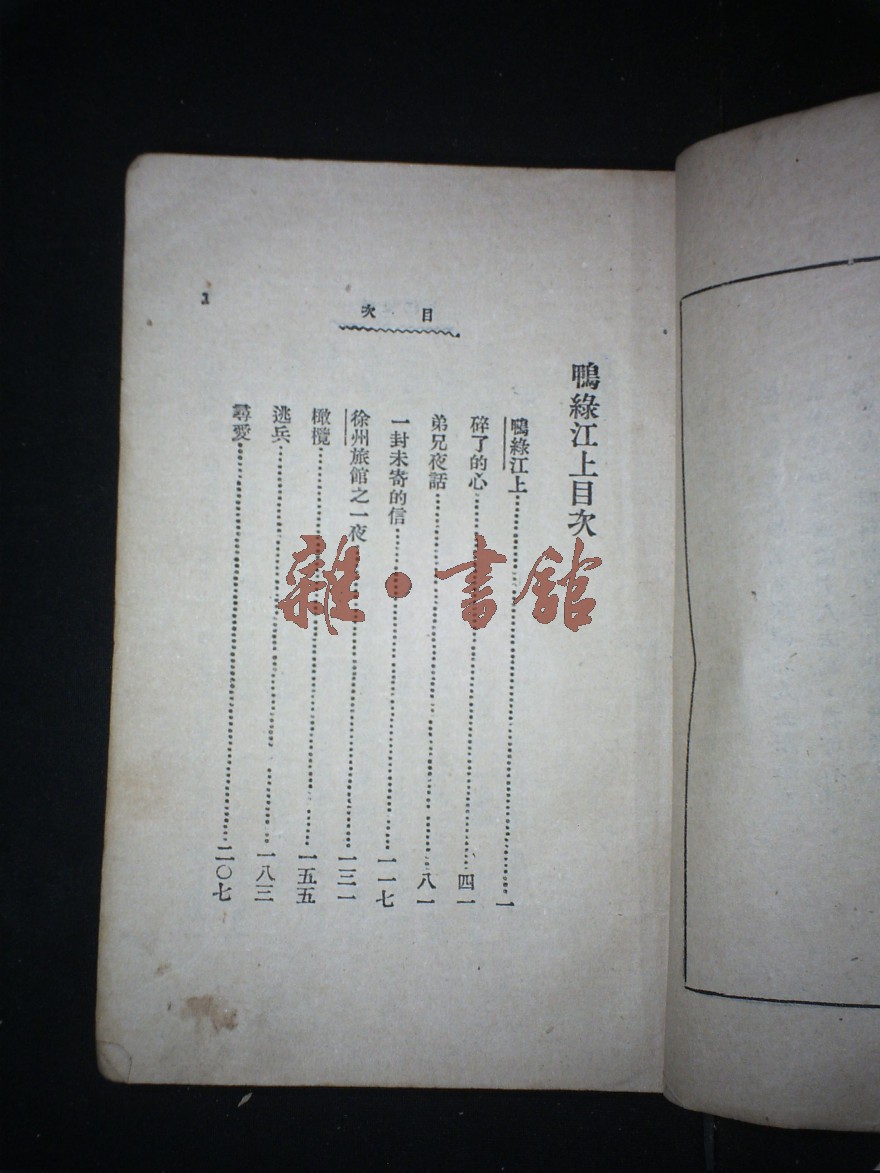 目次
1
鴨綠江上目次
鴨綠江上……一
碎了的心……四一
弟兄夜話……八一
一封未寄的信……一一七
徐州旅館之一夜……一三一
橄欖……一五五
逃兵……一八三
尋愛……二〇七
雜·書館